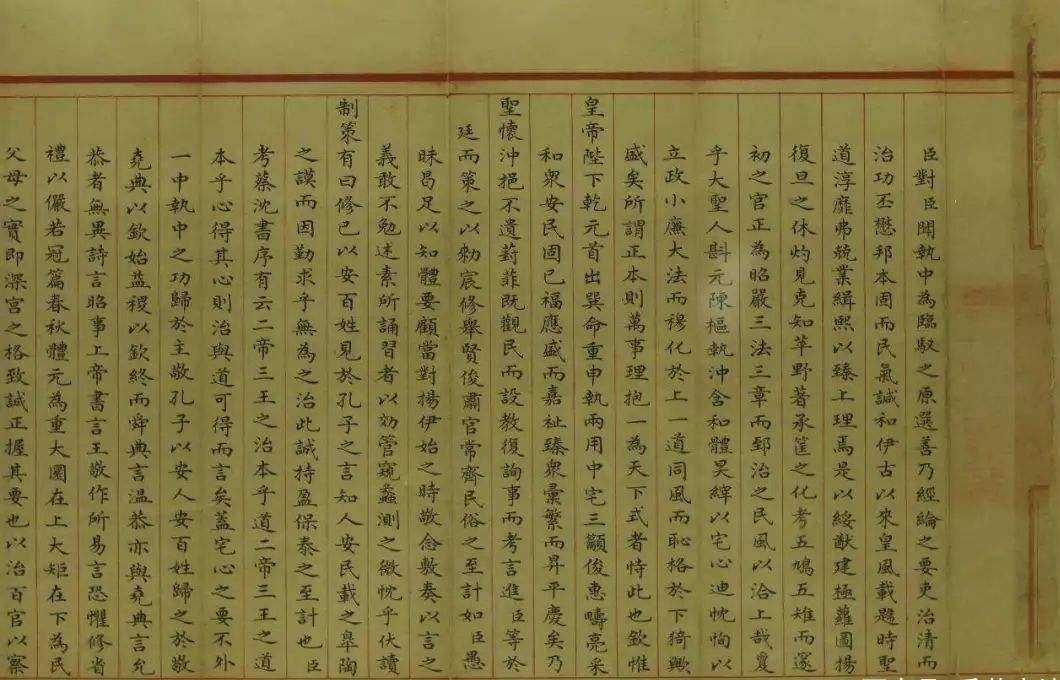 臣對臣聞執中為臨馭之原選善乃經綸之要吏治清而
治功丕懋邦本固而民氣誠和伊古以來皇風載颺時聖
道淳龐弗兢業緝熙以臻上理焉是以綏猷建極蘿圖揚
復旦之休灼見克知苹野著承筐之化考五鳩五雉而邃
初之官正為昭嚴三法三章而郅治之民風以洽上哉敻
乎大聖人斟元陳樞執沖含和體昊緯以宅心迪忱恂以
立政小廉大法而穆化於上一道同風而恥格於下猗歟
盛矣所謂正本則萬事理抱一為天下式者恃此也欽惟
皇帝陛下乾元首出巽命重申執兩用中宅三顲俊惠疇亮采
和衆安民固已福應盛而嘉祉臻衆彙繁而昇平慶矣乃
聖懷沖挹不遺葑菲既觀民而設教復詢事而考言進臣等於
廷而策之以勑宸修舉賢俊肅官常齊民俗之至計如臣愚
昧曷足以知體要顧當對揚伊始之時敬念敷奏以言之
義敢不勉述素所誦習者以効管窺蠡測之微忱乎伏讀
制策有曰修已以安百姓見於孔子之言知人安民載之皐陶
之謨而因勤求乎無為之治此誠持盈保泰之至計也臣
考蔡沈書序有云二帝三王之治本乎道二帝三王之道
本乎心得其心則治與道可得而言矣蓋宅心之要不外
一中執中之功歸於主敬孔子以安人安百姓歸之於敬
堯典以欽始益稷以欽終而舜典言溫恭亦與堯典言允
恭者無異詩言昭事上帝書言王敬作所易言恐懼修省
禮以儼若冠篇春秋體元為重大圜在上大矩在下為民
父母之實即深宮之格致誠正握其要也以治百官以察